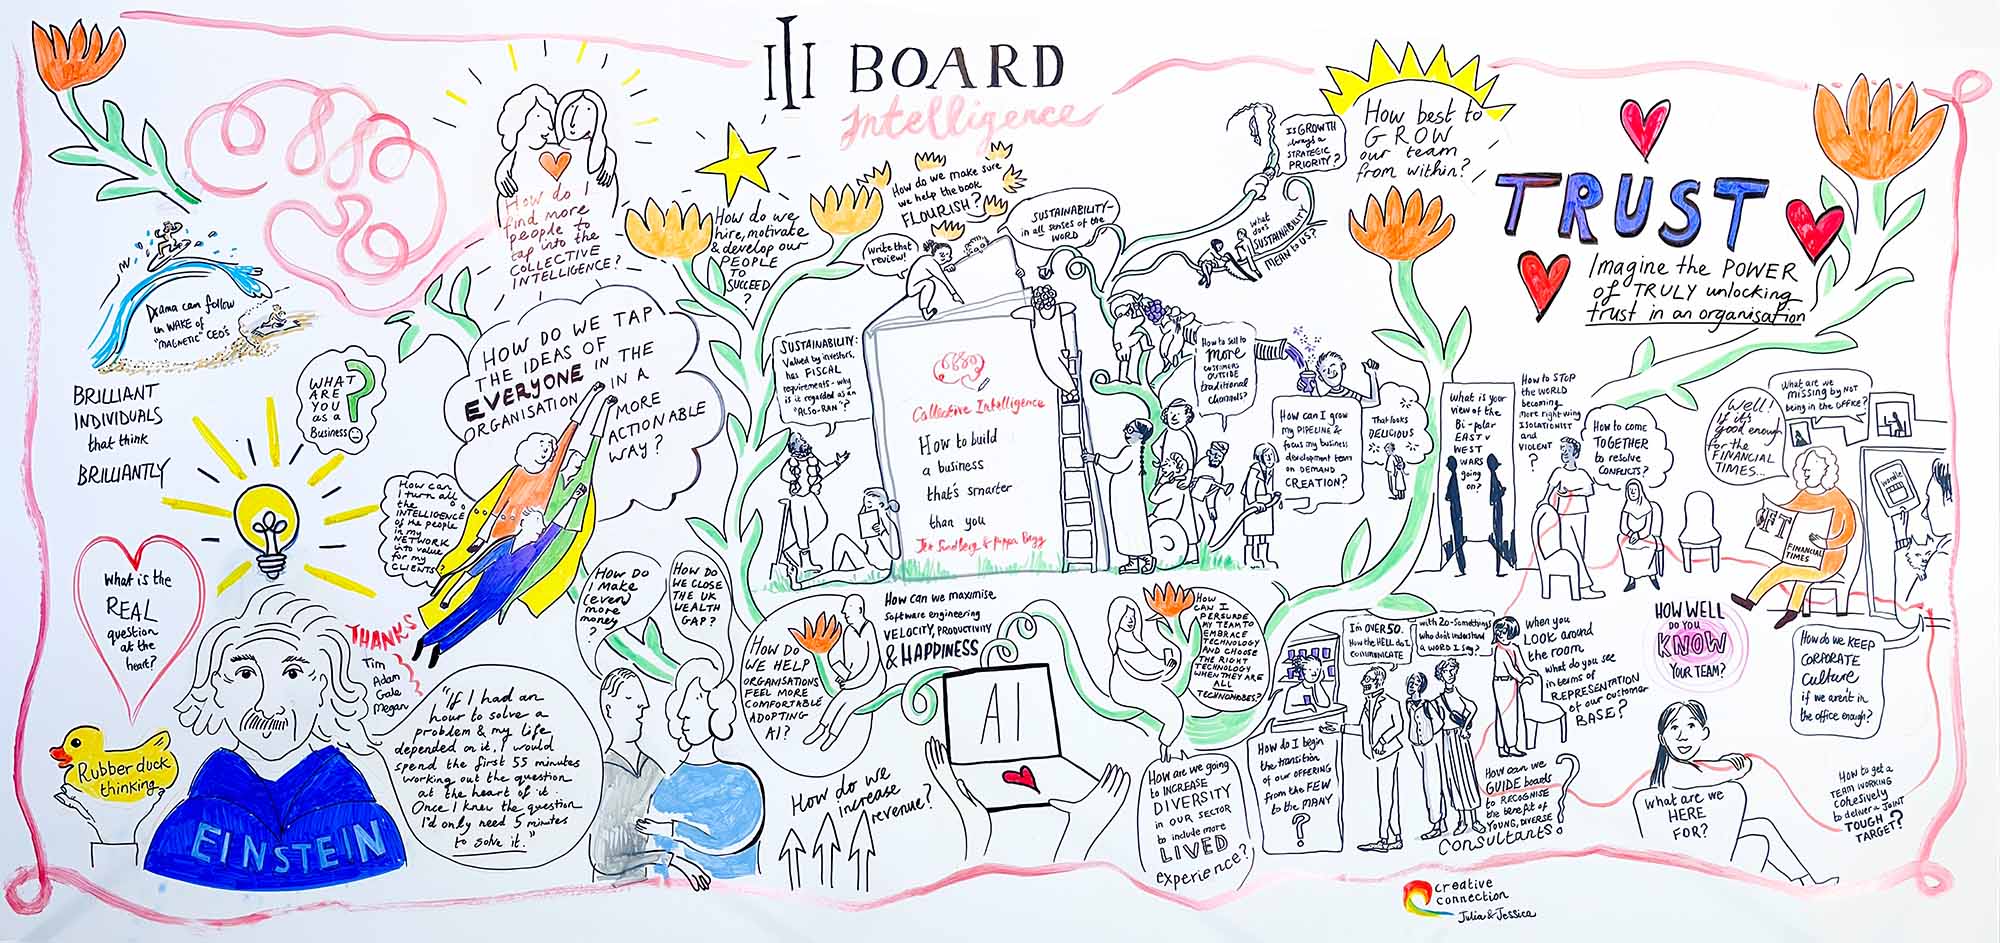 BOARD
Intelligence
How do I
find more
people to
tap into the
COLLECTIVE
INTELLIGENCE?
How do we
hire, motivate
& develop our
PEOPLE
TO
SUCCEED
?
How do we make sure
we help the book
FLOURISH?
write that
review!
SUSTAINABILITY-
in all senses of the
WORD
IS GROWTH
always a
STRATEGIC
PRIORITY?
what
does
SUSTAINABILITY
MEAN to US?
How best to
GROW
our team
from within?
TRUST
Imagine the POWER
of TRULY unlocking
trust in an organisation
Drama can follow
in WAKE of
"MAGNETIC" CEO'S
BRILLIANT
INDIVIDUALS
that think
BRILLIANTLY
WHAT
ARE
YOU
as a
Business
?
HOW DO WE TAP
THE IDEAS OF
EVERYONE IN THE
ORGANISATION IN A
MORE
ACTIONABLE
WAY?
How can
I turn all
the
INTELLIGENCE
of the people
in my
NETWORK
into value
for my
CLIENTS?
What is the
REAL
question
at the
heart?
THANKS
Tim
Adam
Gale
Megan
Rubber duck
thinking
EINSTEIN
"If I had an
hour to solve a
problem & my life
depended on it, I would
spend the first 55 minutes
working out the question
at the heart of it.
Once I knew the question
I'd only need 5 minutes
to solve it."
HOW DO
I MAKE
(even)
more
money
?
HOW DO
WE CLOSE
THE UK
WEALTH
GAP?
SUSTAINABILITY:
Valued by investors,
has FISCAL
requirements - why
is it regarded as an
"ALSO-RAN"?
Collective Intelligence
How to build
a business
that's smarter
than you
Jen Sundberg & Pippa Begg
How to sell to
more
customers
OUTSIDE
traditional
channels?
How can I grow
my PIPELINE &
focus my business
development team
on DEMAND
CREATION?
That looks
DELICIOUS
HOW DO
WE HELP
ORGANISATIONS
FEEL MORE
COMFORTABLE
ADOPTING
AI?
How can we maximise
software engineering
VELOCITY, PRODUCTIVITY
& HAPPINESS
AI
How do we
increase
revenue?
HOW
CAN I
PERSUADE
MY TEAM TO
EMBRACE
TECHNOLOGY
AND CHOOSE
THE RIGHT
TECHNOLOGY
WHEN THEY ARE
ALL
TECHNOPHOBES?
How are we going
to INCREASE
DIVERSITY
in OUR SECTOR
to include more
LIVED
experience?
What is your
view of the
Bi-polar
EAST v
WEST
WARS
going
on?
How to STOP
the WORLD
becoming
more right-wing
ISOLATIONIST
and
VIOLENT
?
How to come
TOGETHER
to resolve
CONFLICTS?
Well!
If it's
good enough
for the
FINANCIAL
TIMES...
What are we
missing by NOT
being in the OFFICE?
FT
FINANCIAL
TIMES
I'm OVER 50.
How the HELL do I
communicate
with 20-Somethings
who don't understand
a WORD I say?
How do I begin
the transition
of our OFFERING
from the FEW
to the MANY
?
When you
LOOK around
the room
what do you see
in terms of
REPRESENTATION
of our customer
BASE?
HOW WELL
DO YOU
KNOW
YOUR TEAM?
How do we KEEP
CORPORATE
CULTURE
if we aren't in
the office enough?
How can we
GUIDE boards
to RECOGNISE
the benefit of
YOUNG, DIVERSE
CONSULTANTS?
What are we
HERE
FOR?
How to get a
TEAM WORKING
cohesively
to deliver a JOINT
TOUGH
TARGET?
creative
connection
Julia & Jessica